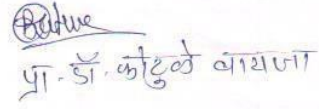 प्रा. डॉ. कोटुळे बायजा